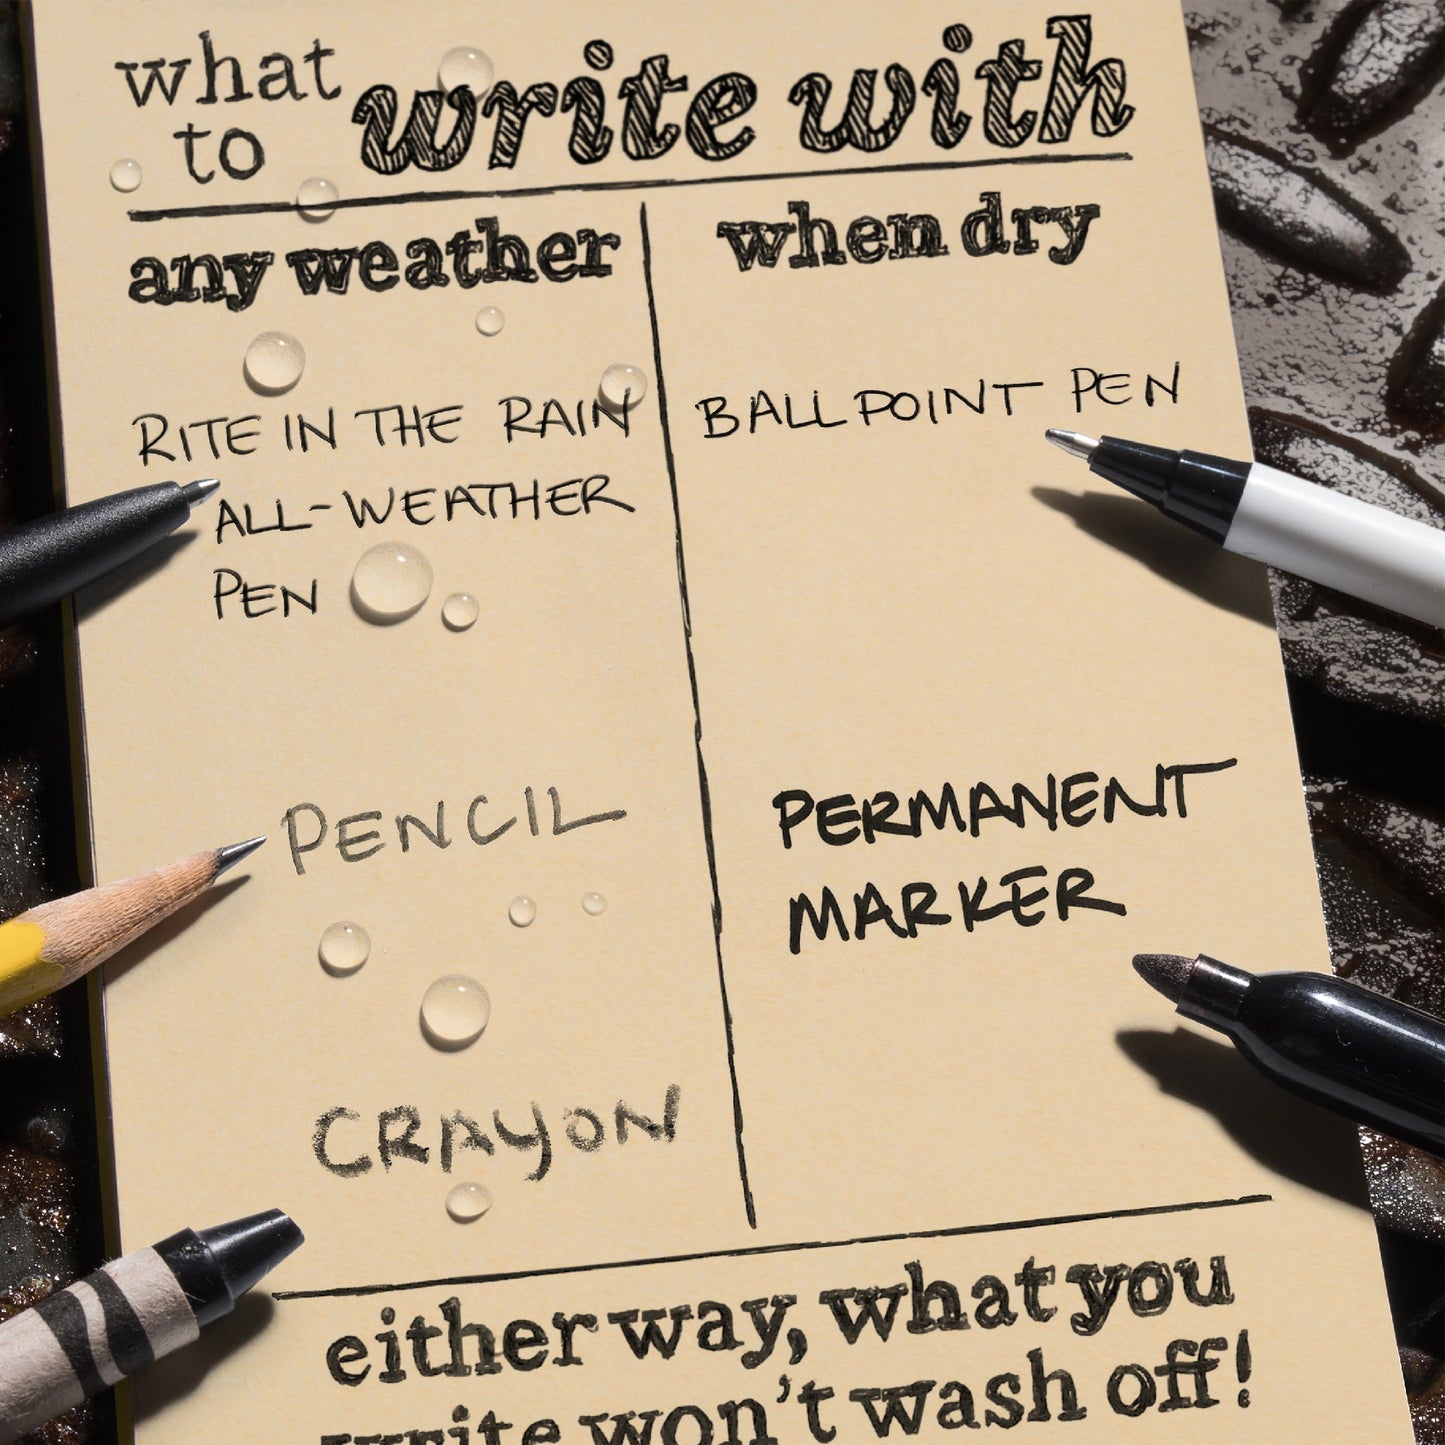 what
to write with
any weather
when dry
RITE IN THE RAIN
ALL-WEATHER
PEN
BALLPOINT PEN
PENCIL
PERMANENT
MARKER
CRAYON
either way, what you
write won't wash off!